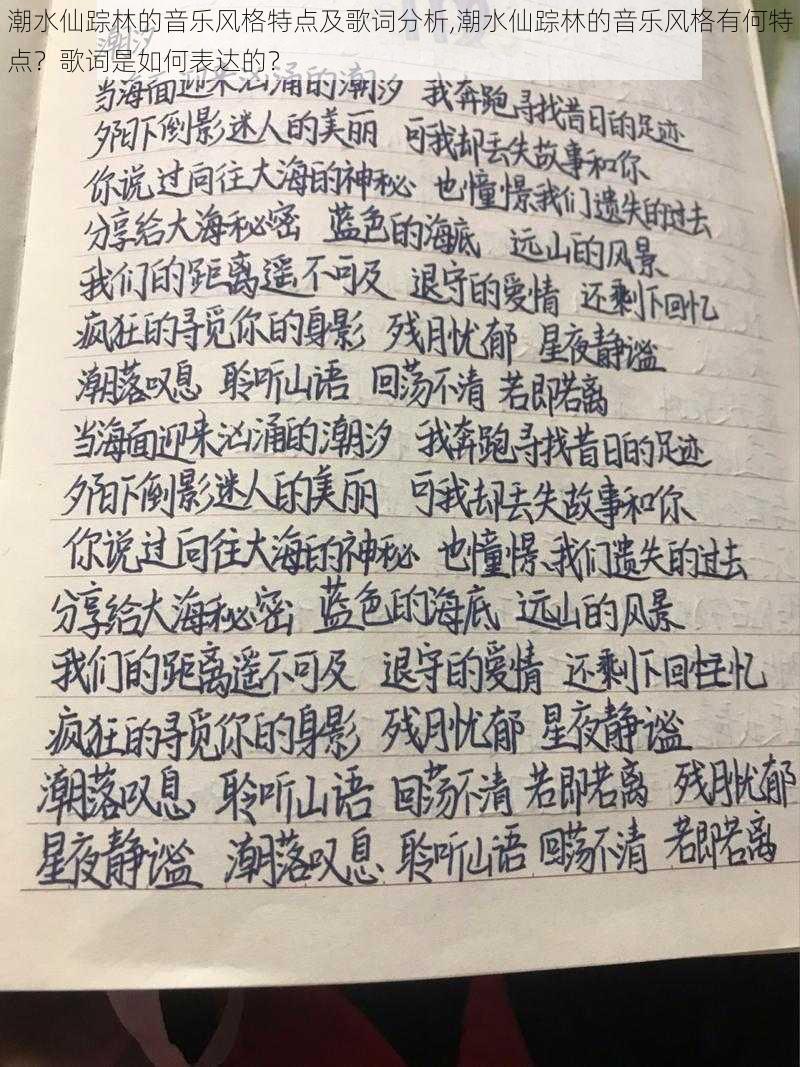 潮水仙踪林的音乐风格特点及歌词分析,潮水仙踪林的音乐风格有何特
点？歌词是如何表达的？
潮汐
当海面迎来汹涌的潮汐 我奔跑寻找昔日的足迹
夕阳下倒影迷人的美丽 可我却丢失故事和你
你说过向往大海的神秘 也憧憬我们遗失的过去
分享给大海秘密 蓝色的海底 远山的风景
我们的距离遥不可及 退守的爱情 还剩下回忆
疯狂的寻觅你的身影 残月忧郁 星夜静谧
潮落叹息 聆听山语 回荡不清 若即若离
当海面迎来汹涌的潮汐 我奔跑寻找昔日的足迹
夕阳下倒影迷人的美丽 可我却丢失故事和你
你说过向往大海的神秘 也憧憬我们遗失的过去
分享给大海秘密 蓝色的海底 远山的风景
我们的距离遥不可及 退守的爱情 还剩下回忆
疯狂的寻觅你的身影 残月忧郁 星夜静谧
潮落叹息 聆听山语 回荡不清 若即若离 残月忧郁
星夜静谧 潮落叹息 聆听山语 回荡不清 若即若离